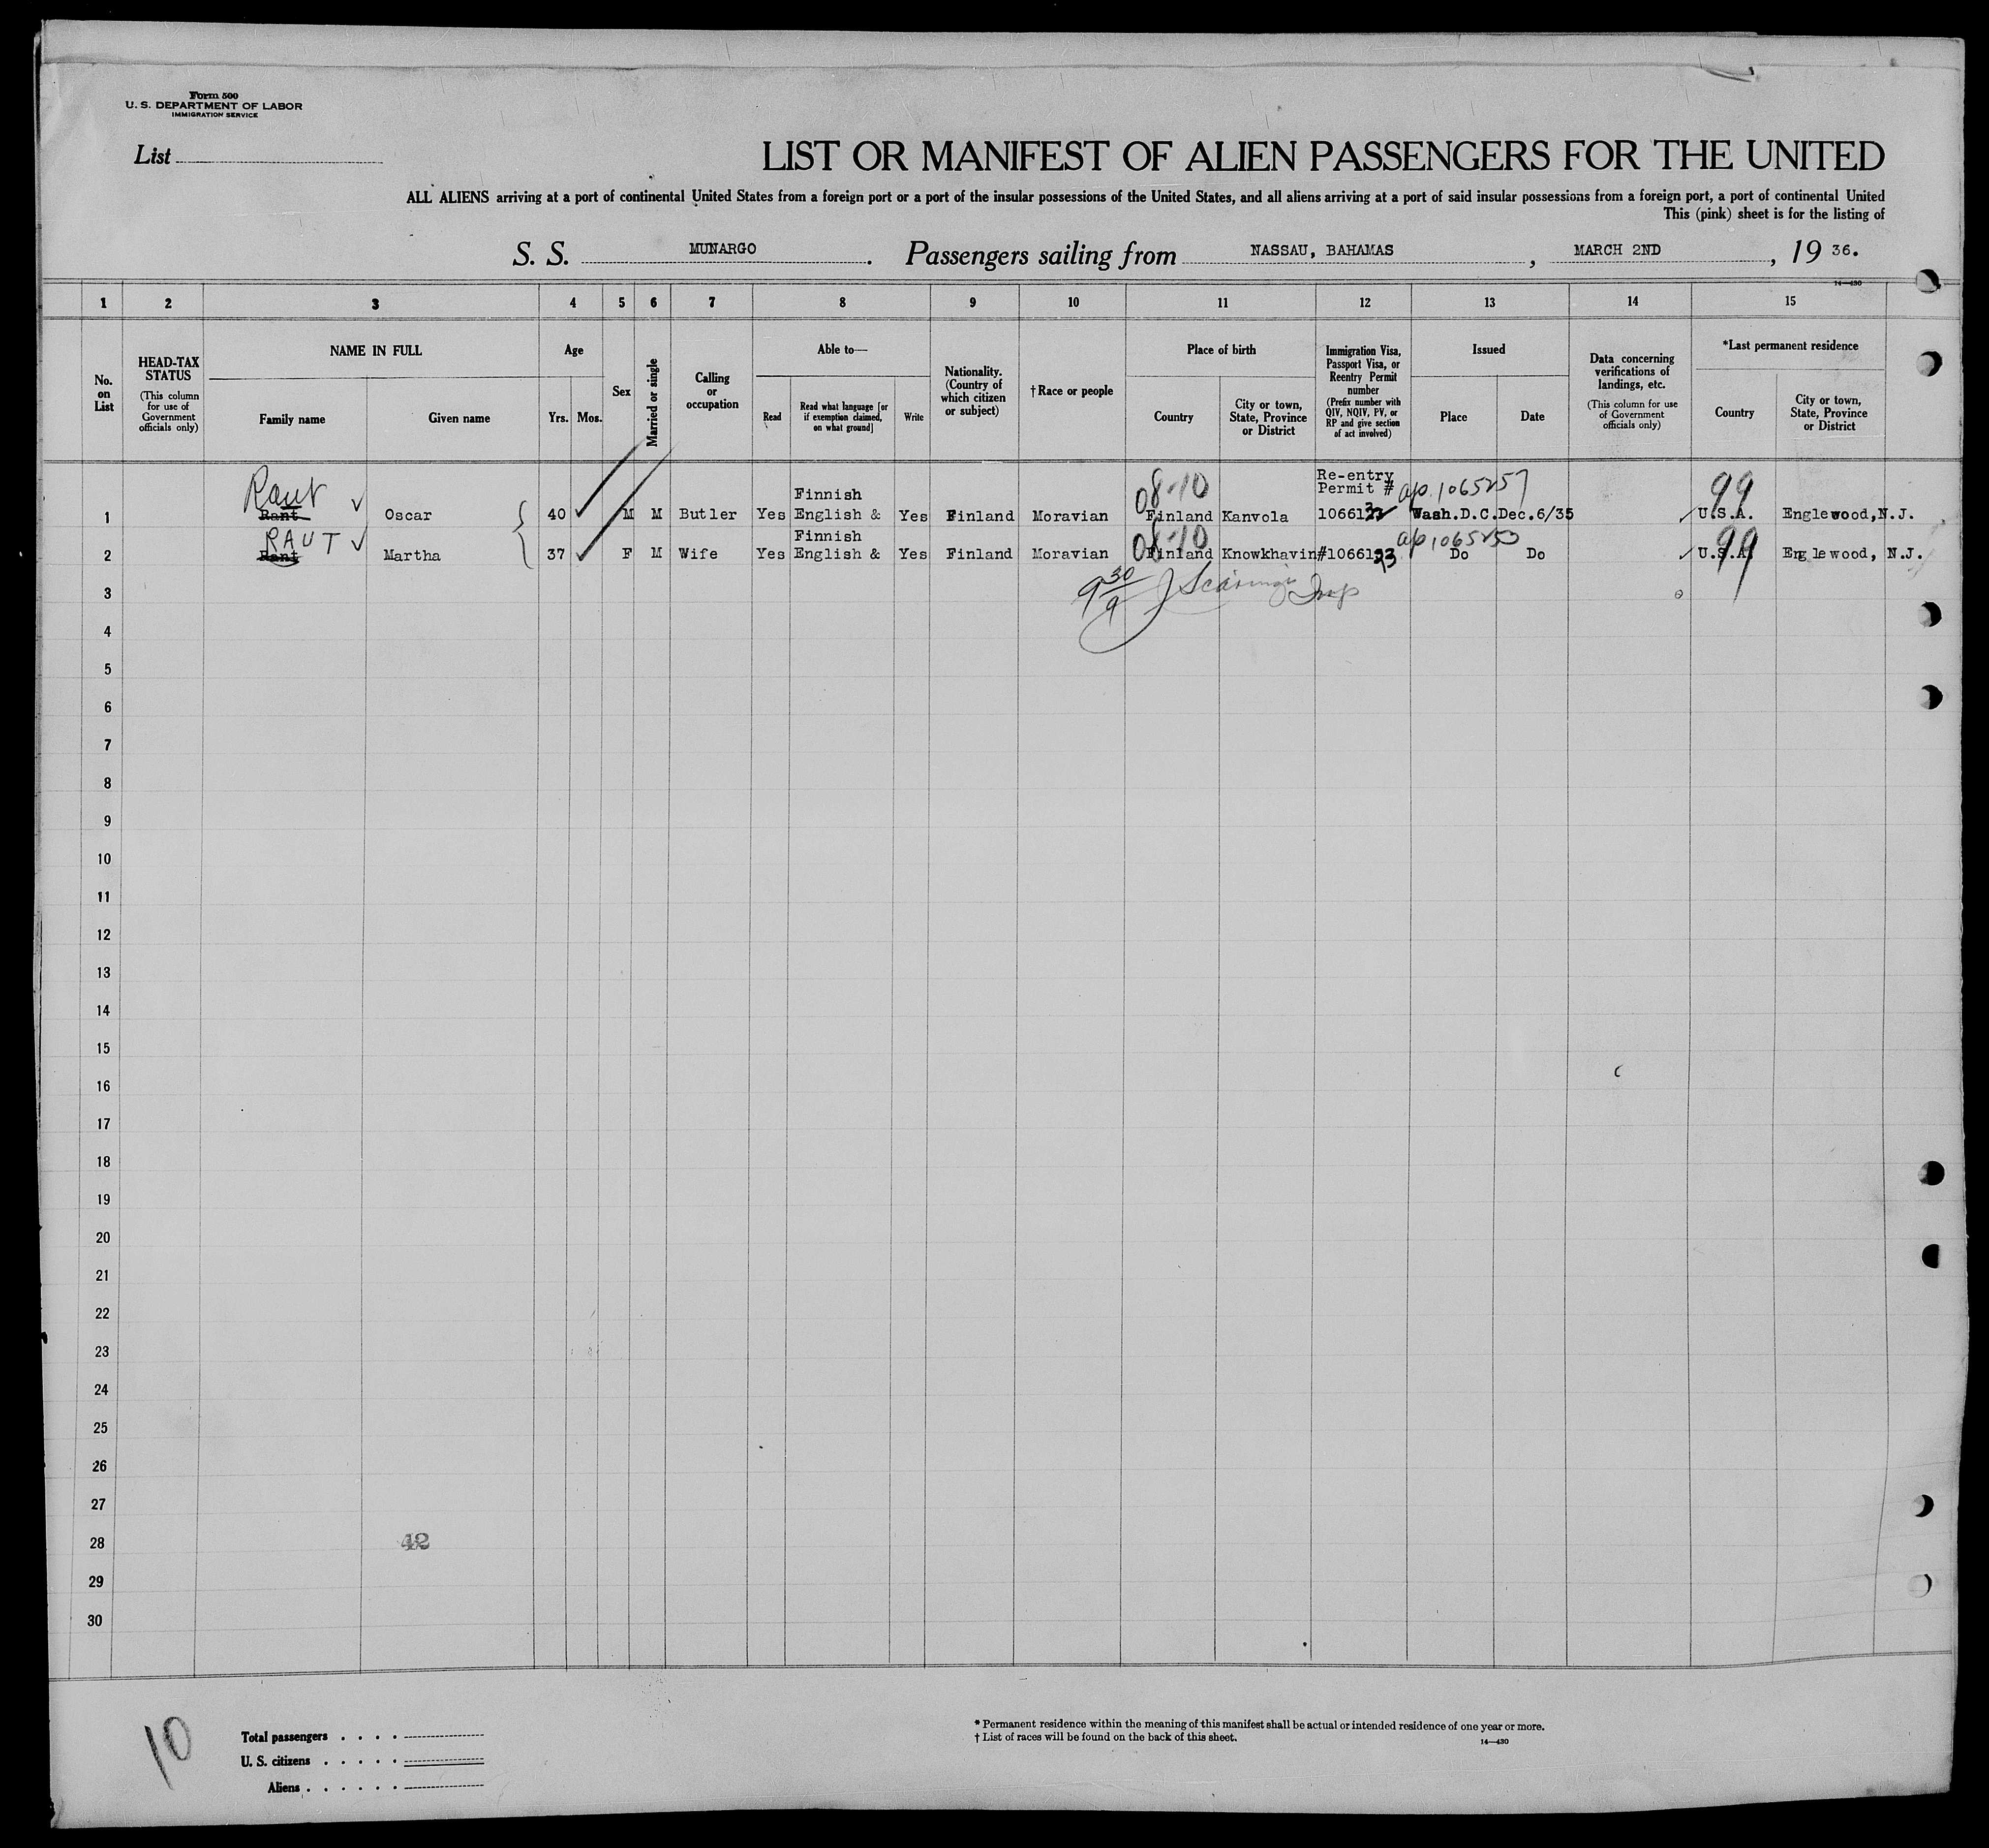 Form 500
U. S. DEPARTMENT OF LABOR
IMMIGRATION SERVICE
List
LIST OR MANIFEST OF ALIEN PASSENGERS FOR THE UNITED
ALL ALIENS arriving at a port of continental United States from a foreign port or a port of the insular possessions of the United States, and all aliens arriving at a port of said insular possessions from a foreign port, a port of continental United
This (pink) sheet is for the listing of
S. S. MUNARGO. Passengers sailing from NASSAU, BAHAMAS, MARCH 2ND, 19 36.
14—430
1 2 3 4 5 6 7 8 9 10 11 12 13 14 15
No. on List
HEAD-TAX STATUS
(This column for use of Government officials only)
NAME IN FULL
Family name
Given name
Age
Yrs.
Mos.
Sex
Married or single
Calling or occupation
Able to—
Read
Read what language [or if exemption claimed, on what ground]
Write
Nationality. (Country of which citizen or subject)
† Race or people
Place of birth
Country
City or town, State, Province or District
Immigration Visa, Passport Visa, or Reentry Permit number
(Prefix number with QIV, NQIV, PV, or RP and give section of act involved)
Issued
Place
Date
Data concerning verifications of landings, etc.
(This column for use of Government officials only)
*Last permanent residence
Country
City or town, State, Province or District
Raut 08-10 Re-entry Permit # a/p 1065257 99
1 Rant Oscar 40 M M Butler Yes Finnish English & Yes Finland Moravian Finland Kanvola 10661 Wash.D.C. Dec.6/35 U.S.A. Englewood, N.J.
RAUT 08-10 99
2 Rant Martha 37 F M Wife Yes Finnish English & Yes Finland Moravian Finland Knowkhavin #10661 Do Do U.S.A. Englewood, N.J.
9 30/9 Insp
3
4
5
6
7
8
9
10
11
12
13
14
15
16
17
18
19
20
21
22
23
24
25
26
27
28 42
29
30
10
Total passengers . . . .
U. S. citizens . . . . .
Aliens . . . . . .
* Permanent residence within the meaning of this manifest shall be actual or intended residence of one year or more.
† List of races will be found on the back of this sheet.
14—430